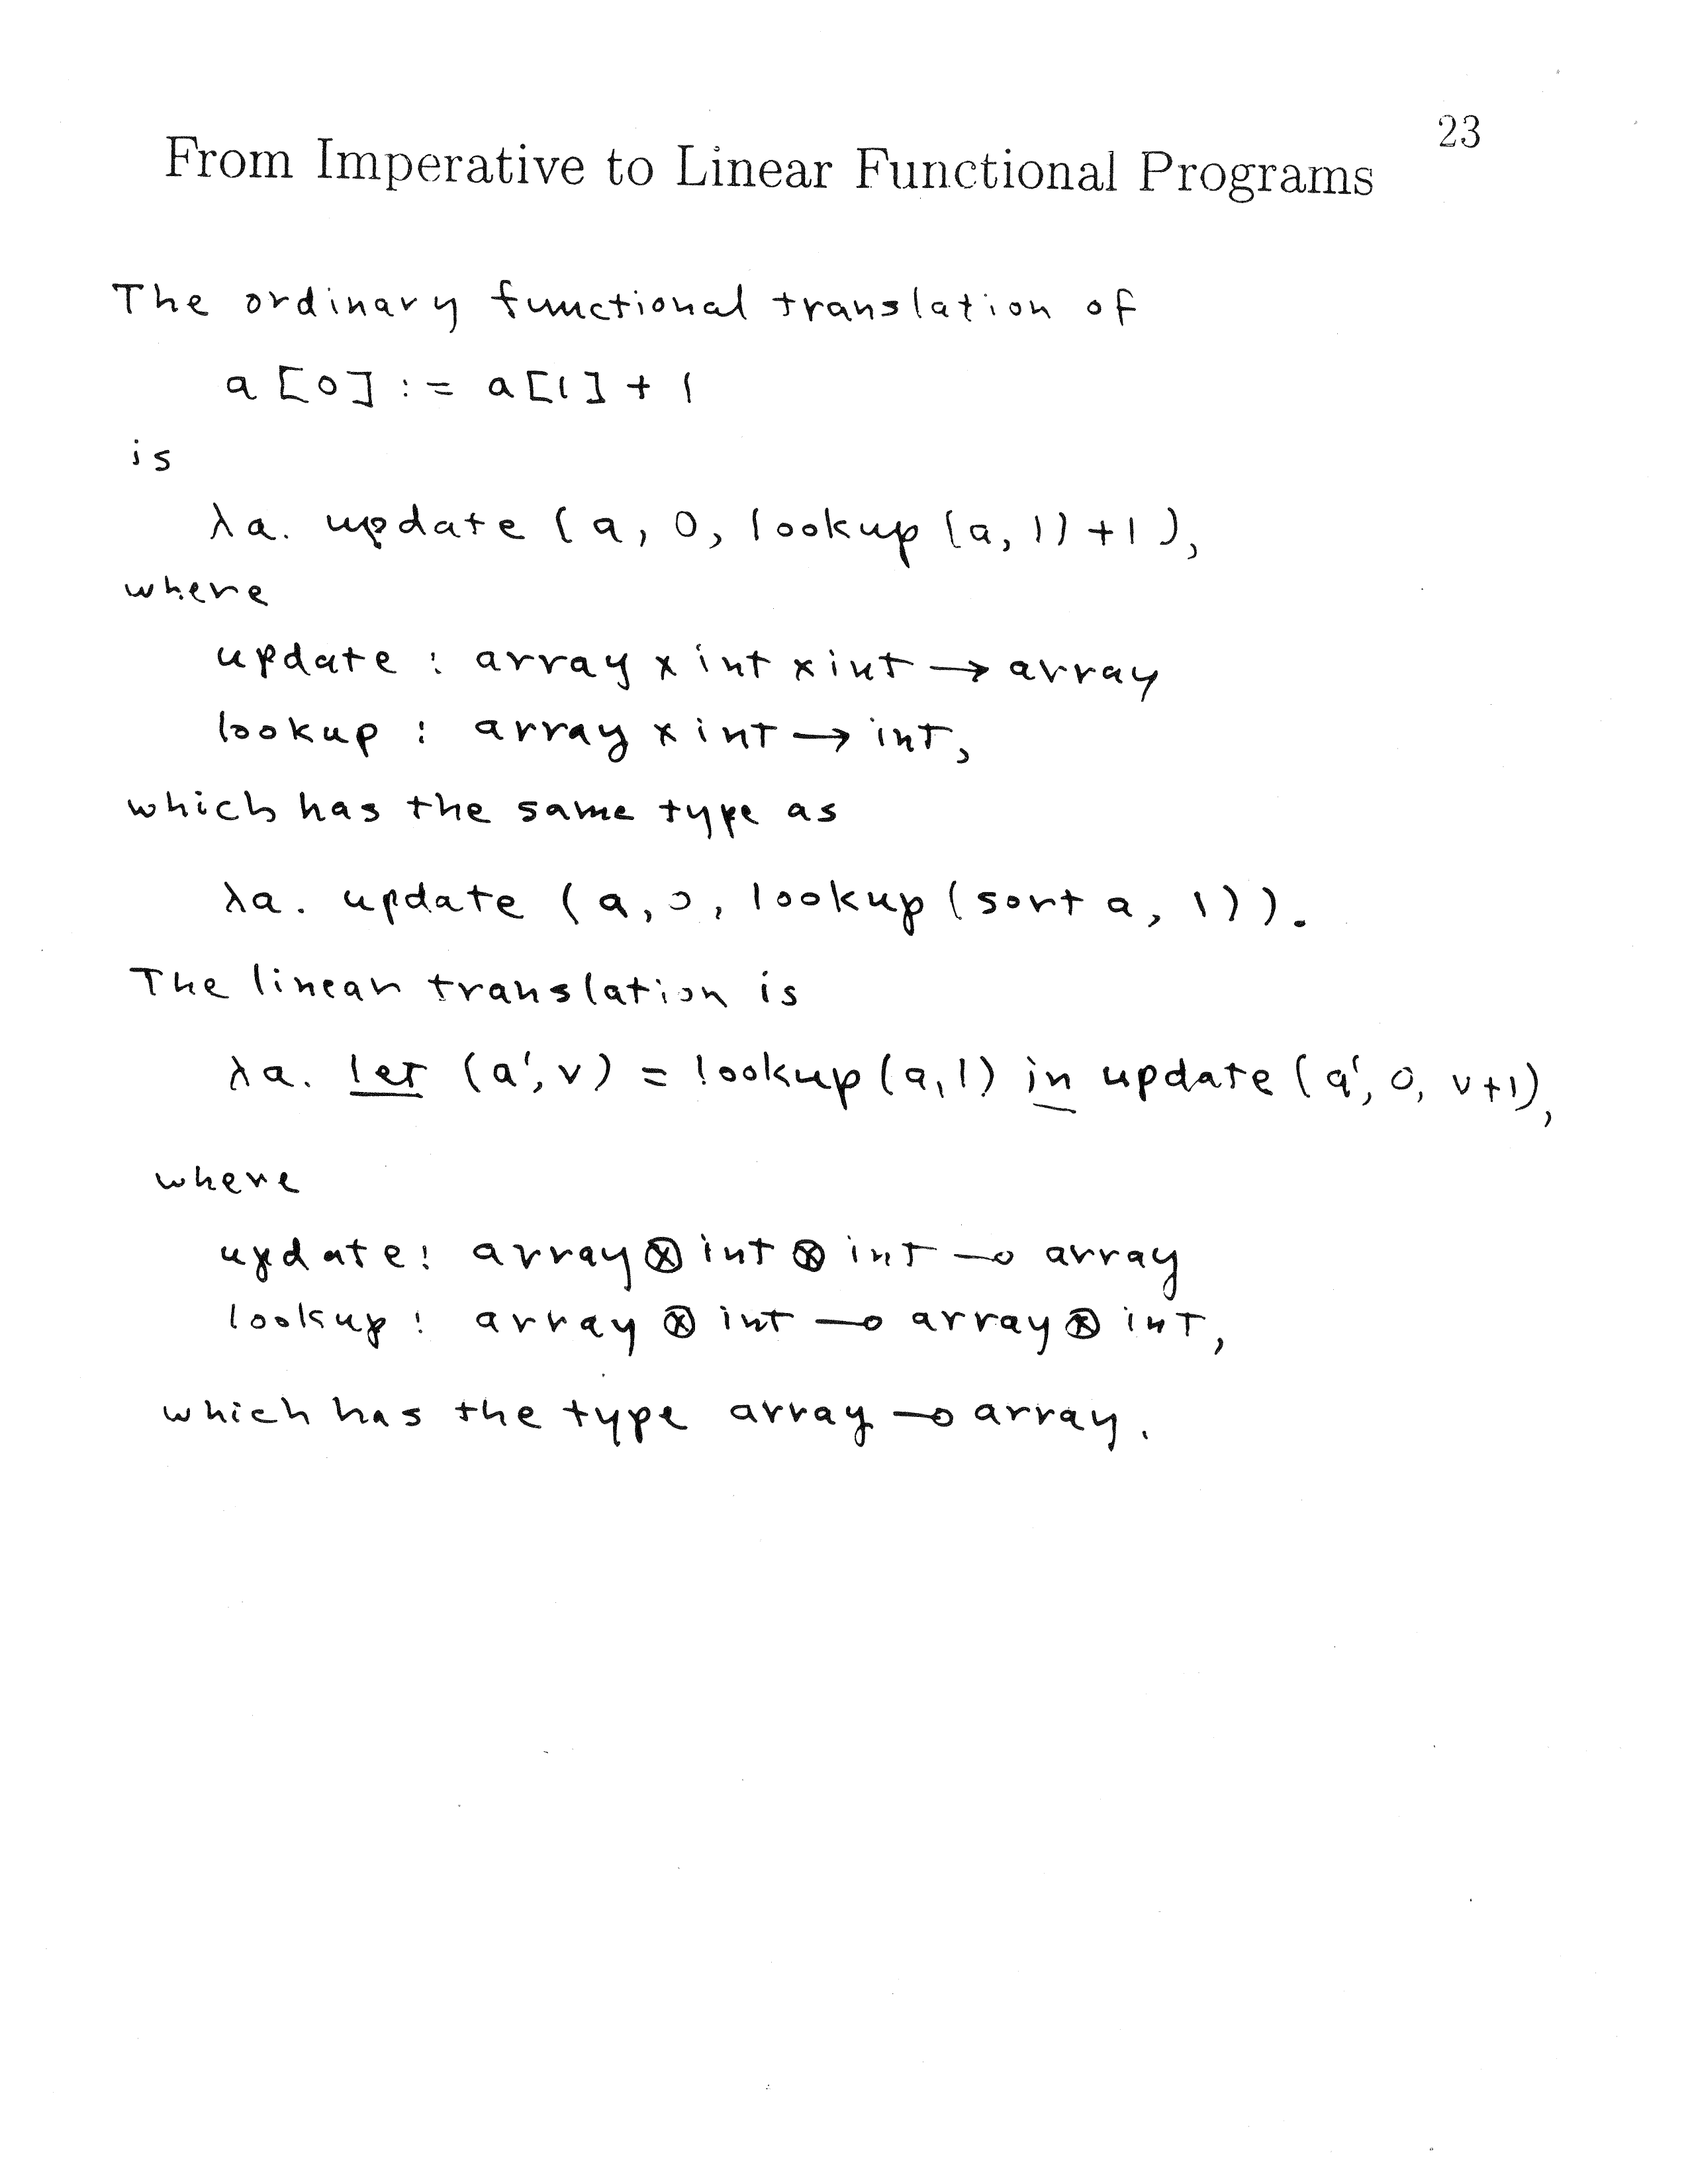 23
From Imperative to Linear Functional Programs
The ordinary functional translation of
a[0] := a[1] + 1
is
λa. update (a, 0, lookup (a, 1) + 1),
where
update : array × int × int → array
lookup : array × int → int,
which has the same type as
λa. update (a, 0, lookup (sort a, 1)).
The linear translation is
λa. let (a', v) = lookup (a, 1) in update (a', 0, v+1),
where
update : array ⊗ int ⊗ int ⊸ array
lookup : array ⊗ int ⊸ array ⊗ int,
which has the type array ⊸ array.